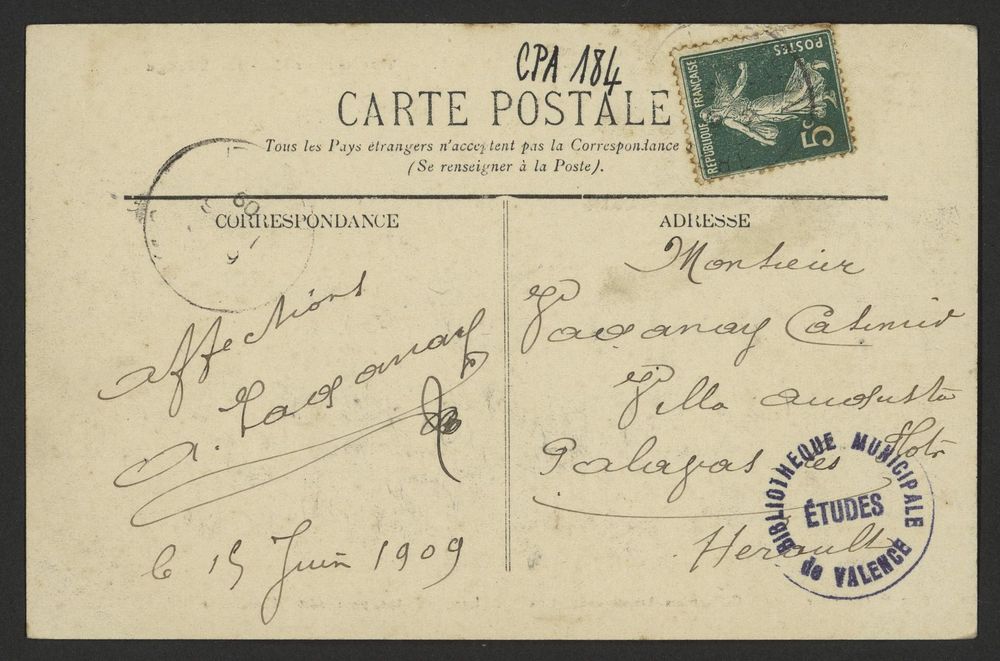 CPA 184
CARTE POSTALE
Tous les Pays étrangers n'acceptent pas la Correspondance
(Se renseigner à la Poste).
REPUBLIQUE FRANÇAISE
POSTES
5c
CORRESPONDANCE
Affections
A.
le 15 Juin 1909
ADRESSE
Monsieur
Casimir
Villa Augusta
Palavas les Flots
Herault
BIBLIOTHEQUE MUNICIPALE
ÉTUDES
de VALENCE